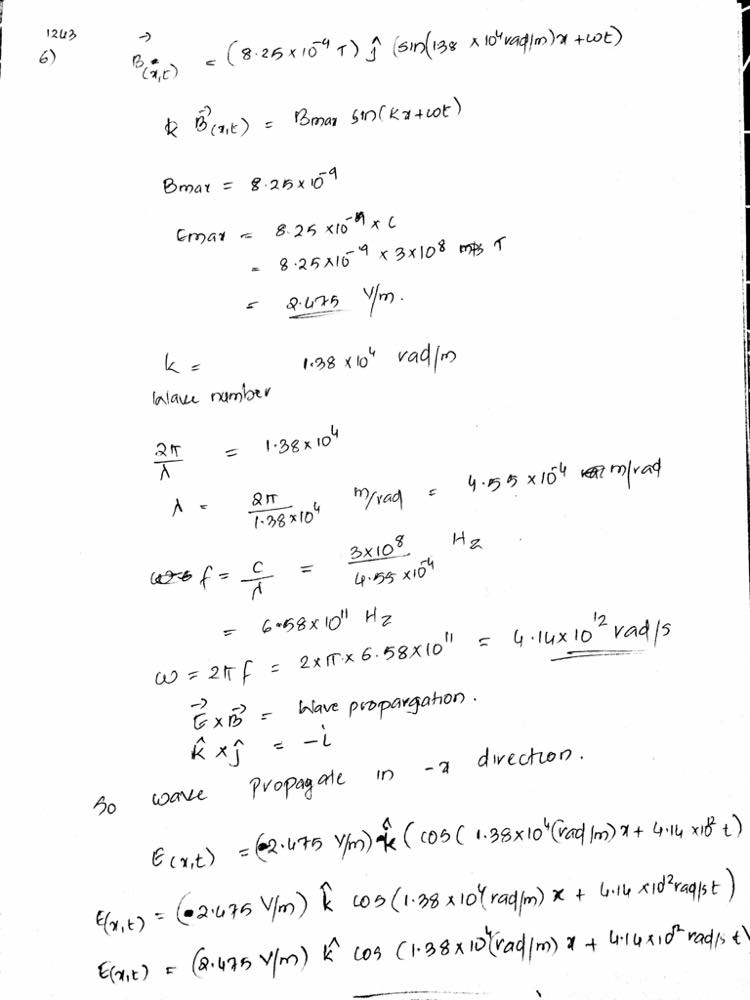 1243
6) B⃗(x,t) = (8.25 × 10⁻⁹ T) ĵ (sin(138 × 10⁴ rad/m) x + ωt)
k B⃗(x,t) = Bmax sin(kx + ωt)
Bmax = 8.25 × 10⁻⁹
Emax = 8.25 × 10⁻⁹ × C
= 8.25 × 10⁻⁹ × 3 × 10⁸ T
= 2.475 V/m.
k = 1.38 × 10⁴ rad/m
Wave number
2π/λ = 1.38 × 10⁴
λ = 2π/1.38 × 10⁴ m/rad = 4.55 × 10⁻⁴ m/rad
f = C/λ = 3 × 10⁸/4.55 × 10⁻⁴ Hz
= 6.58 × 10¹¹ Hz
ω = 2πf = 2 × π × 6.58 × 10¹¹ = 4.14 × 10¹² rad/s
E⃗ × B⃗ = Wave propargation.
k̂ × ĵ = -i
So wave propagate in -x direction.
E(x,t) = (2.475 V/m) k̂ (cos( 1.38 × 10⁴ (rad/m) x + 4.14 × 10¹² t)
E(x,t) = (2.475 V/m) k̂ cos (1.38 × 10⁴ (rad/m) x + 4.14 × 10¹² rad/s t)
E(x,t) = (2.475 V/m) k̂ cos (1.38 × 10⁴ (rad/m) x + 4.14 × 10¹² rad/s t)